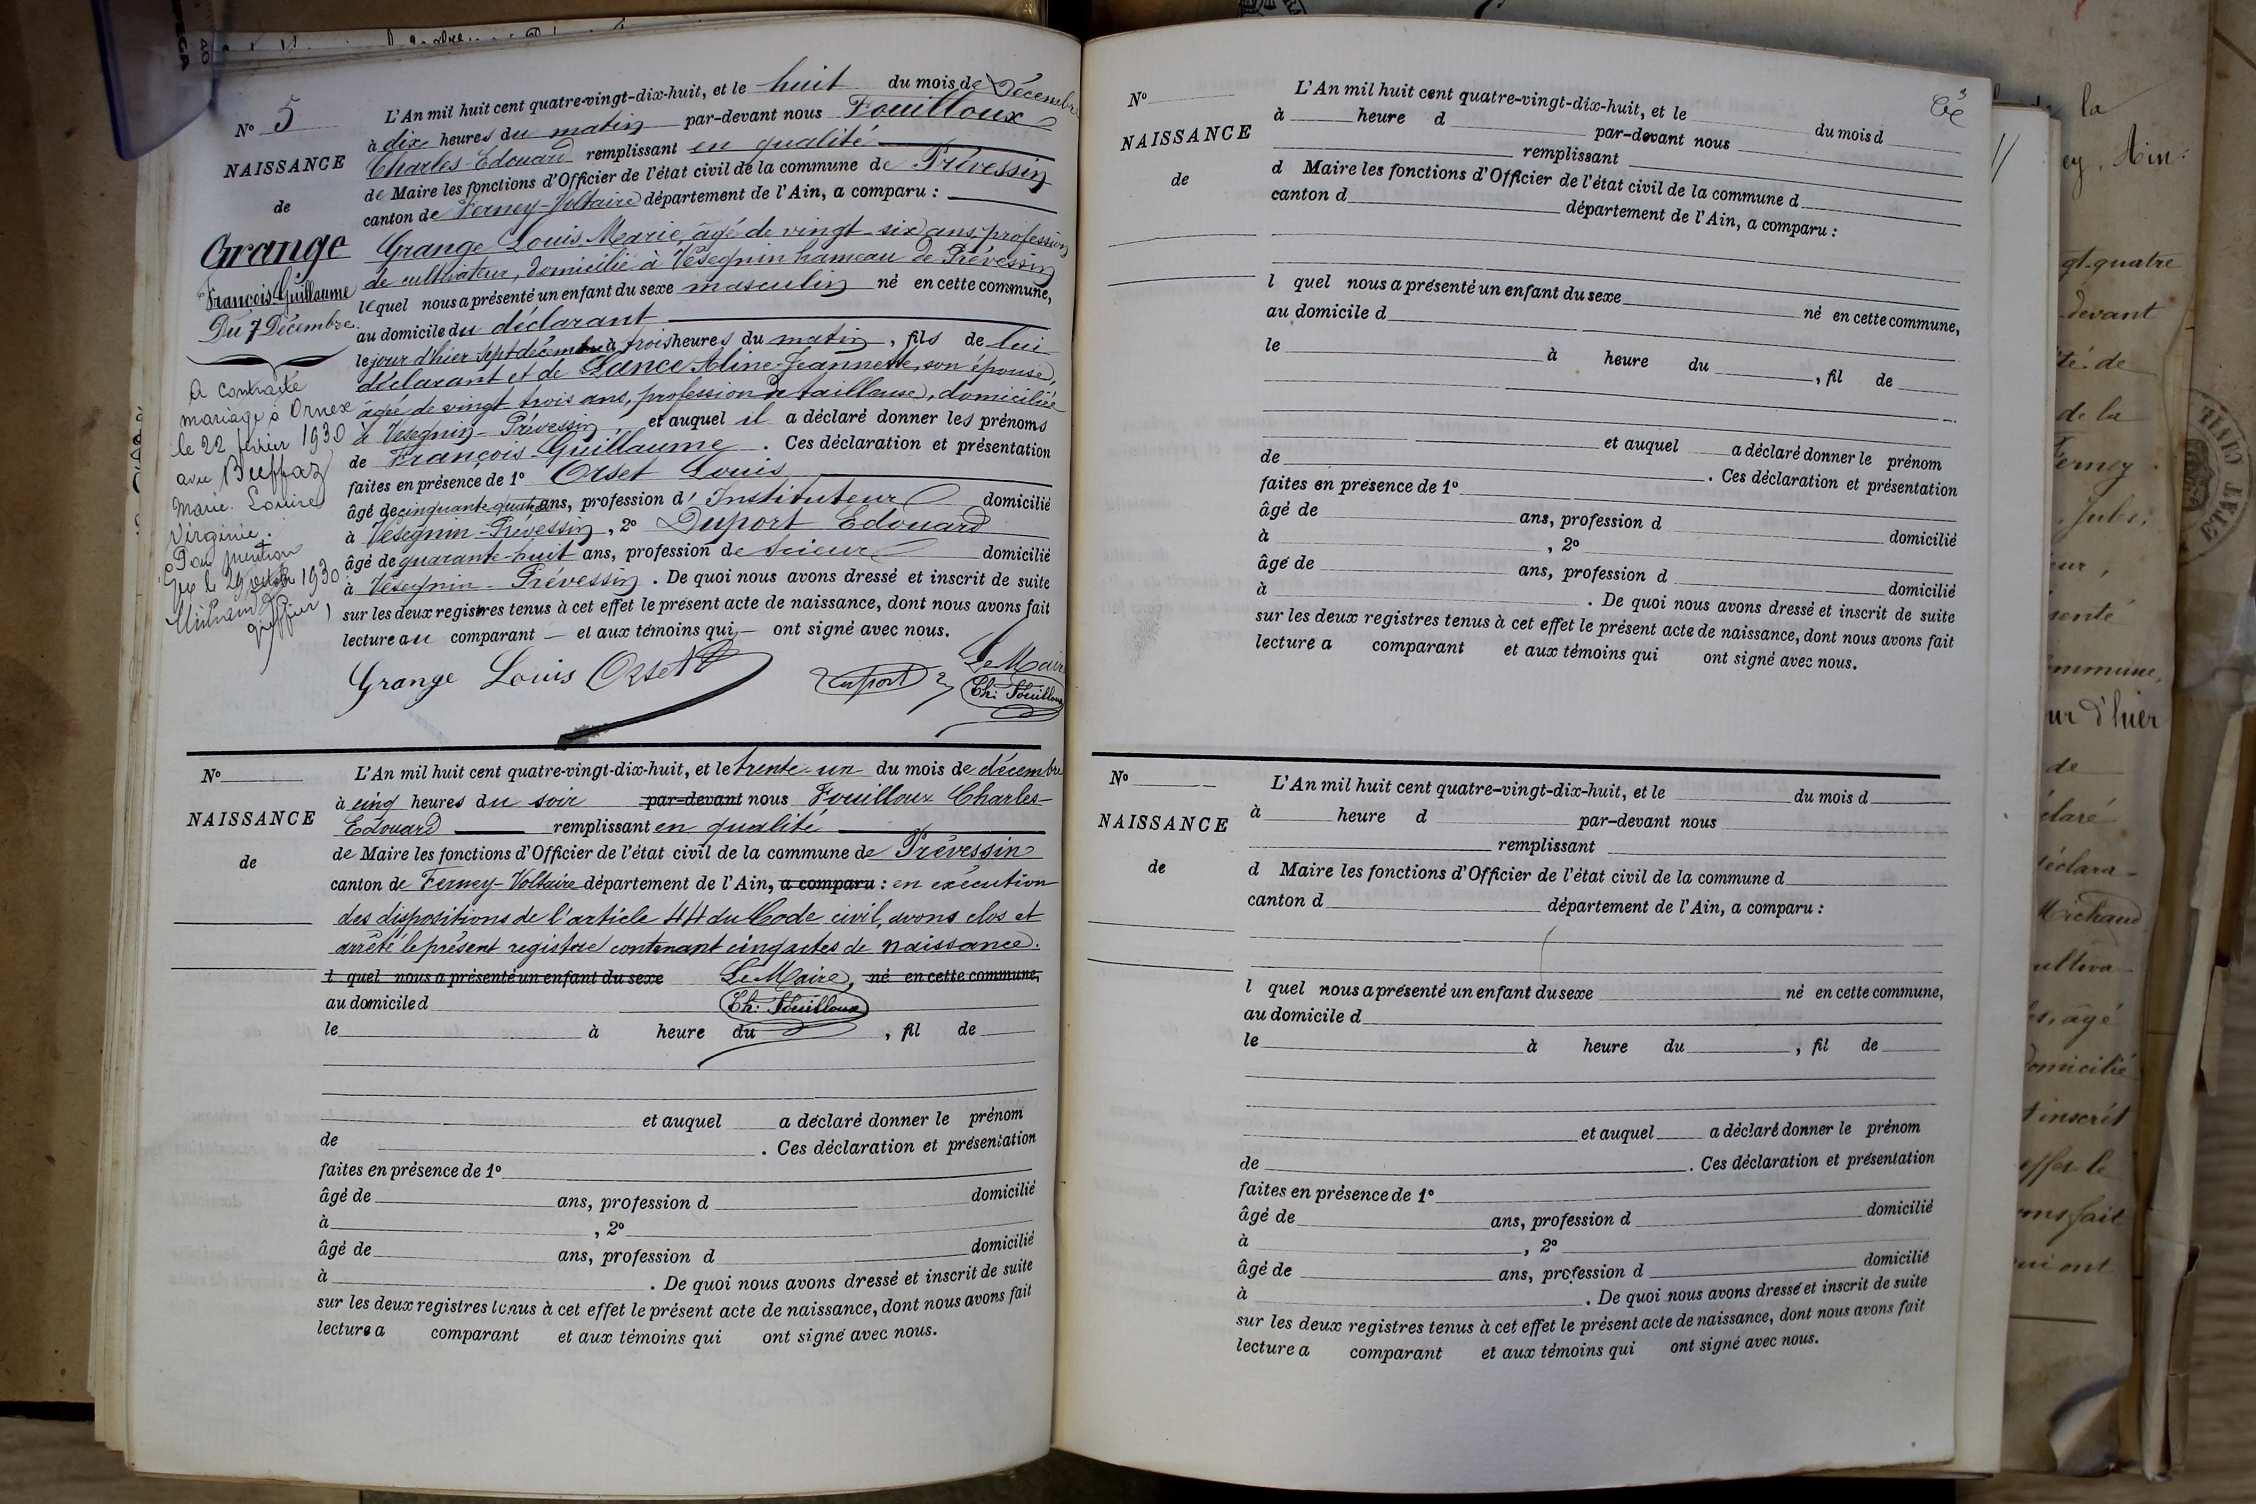 N° 5
NAISSANCE
de
Grange
François Guillaume
Du 7 Décembre
A contracté
mariage à Ornex
le 22 février 1930
avec Buffaz
Marie Louise
Virginie.
Pour mention
Gex le 29 octobre 1930
greffier
L'An mil huit cent quatre-vingt-dix-huit, et le huit du mois de Décembre
à dix heures du matin par-devant nous Fouilloux
Charles-Edouard remplissant en qualité
de Maire les fonctions d'Officier de l'état civil de la commune de Prévessin
canton de Ferney-Voltaire département de l'Ain, a comparu :
Grange Louis Marie, âgé de vingt-six ans, profession
de cultivateur, domicilié à Vésegnin hameau de Prévessin
lequel nous a présenté un enfant du sexe masculin né en cette commune,
au domicile du déclarant
le jour d'hier sept décembre à trois heures du matin, fils de lui
déclarant et de Lance Aline-Jeannette, son épouse,
âgée de vingt trois ans, profession de tailleuse, domiciliée
à Vésegnin-Prévessin, et auquel il a déclaré donner les prénoms
de François-Guillaume. Ces déclaration et présentation
faites en présence de 1° Orset Louis
âgé de cinquante-quatre ans, profession d'Instituteur domicilié
à Vésegnin-Prévessin, 2° Duport Edouard
âgé de quarante-huit ans, profession de scieur domicilié
à Vésegnin-Prévessin. De quoi nous avons dressé et inscrit de suite
sur les deux registres tenus à cet effet le présent acte de naissance, dont nous avons fait
lecture au comparant — et aux témoins qui — ont signé avec nous.
Le Maire
Grange Louis Orset Duport Ch: Fouilloux
N°
NAISSANCE
de
L'An mil huit cent quatre-vingt-dix-huit, et le trente-un du mois de décembre
à cinq heures du soir par-devant nous Fouilloux Charles-
Edouard remplissant en qualité
de Maire les fonctions d'Officier de l'état civil de la commune de Prévessin
canton de Ferney-Voltaire département de l'Ain, a comparu : en exécution
des dispositions de l'article 44 du Code civil, avons clos et
arrêté le présent registre contenant cinq actes de naissance.
l quel nous a présenté un enfant du sexe Le Maire, né en cette commune,
au domicile d Ch: Fouilloux
le à heure du , fil de
et auquel a déclaré donner le prénom
de . Ces déclaration et présentation
faites en présence de 1°
âgé de ans, profession d domicilié
à , 2°
âgé de ans, profession d domicilié
à . De quoi nous avons dressé et inscrit de suite
sur les deux registres tenus à cet effet le présent acte de naissance, dont nous avons fait
lecture a comparant et aux témoins qui ont signé avec nous.
N°
NAISSANCE
de
L'An mil huit cent quatre-vingt-dix-huit, et le du mois d
à heure d par-devant nous
remplissant
d Maire les fonctions d'Officier de l'état civil de la commune d
canton d département de l'Ain, a comparu :
l quel nous a présenté un enfant du sexe né en cette commune,
au domicile d
le à heure du , fil de
et auquel a déclaré donner le prénom
de . Ces déclaration et présentation
faites en présence de 1°
âgé de ans, profession d domicilié
à , 2°
âgé de ans, profession d domicilié
à . De quoi nous avons dressé et inscrit de suite
sur les deux registres tenus à cet effet le présent acte de naissance, dont nous avons fait
lecture a comparant et aux témoins qui ont signé avec nous.
N°
NAISSANCE
de
L'An mil huit cent quatre-vingt-dix-huit, et le du mois d
à heure d par-devant nous
remplissant
d Maire les fonctions d'Officier de l'état civil de la commune d
canton d département de l'Ain, a comparu :
l quel nous a présenté un enfant du sexe né en cette commune,
au domicile d
le à heure du , fil de
et auquel a déclaré donner le prénom
de . Ces déclaration et présentation
faites en présence de 1°
âgé de ans, profession d domicilié
à , 2°
âgé de ans, profession d domicilié
à . De quoi nous avons dressé et inscrit de suite
sur les deux registres tenus à cet effet le présent acte de naissance, dont nous avons fait
lecture a comparant et aux témoins qui ont signé avec nous.
la
Ain
quatre
devant
de
de la
Ferney
ur d'hier
de
âgé
domicilié
inscrit
fait
ETAT CIVIL